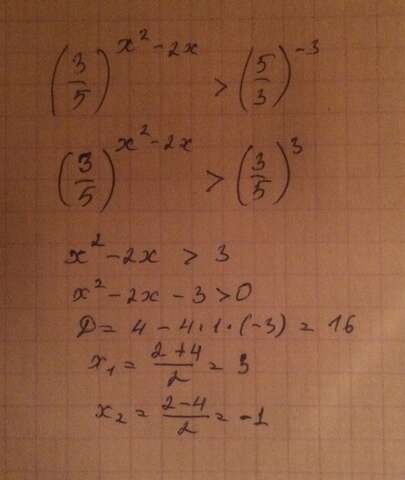 (3/5)^(x² - 2x) > (5/3)^(-3)
(3/5)^(x² - 2x) > (3/5)^3
x² - 2x > 3
x² - 2x - 3 > 0
D = 4 - 4 · 1 · (-3) = 16
x₁ = (2+4)/2 = 3
x₂ = (2-4)/2 = -1